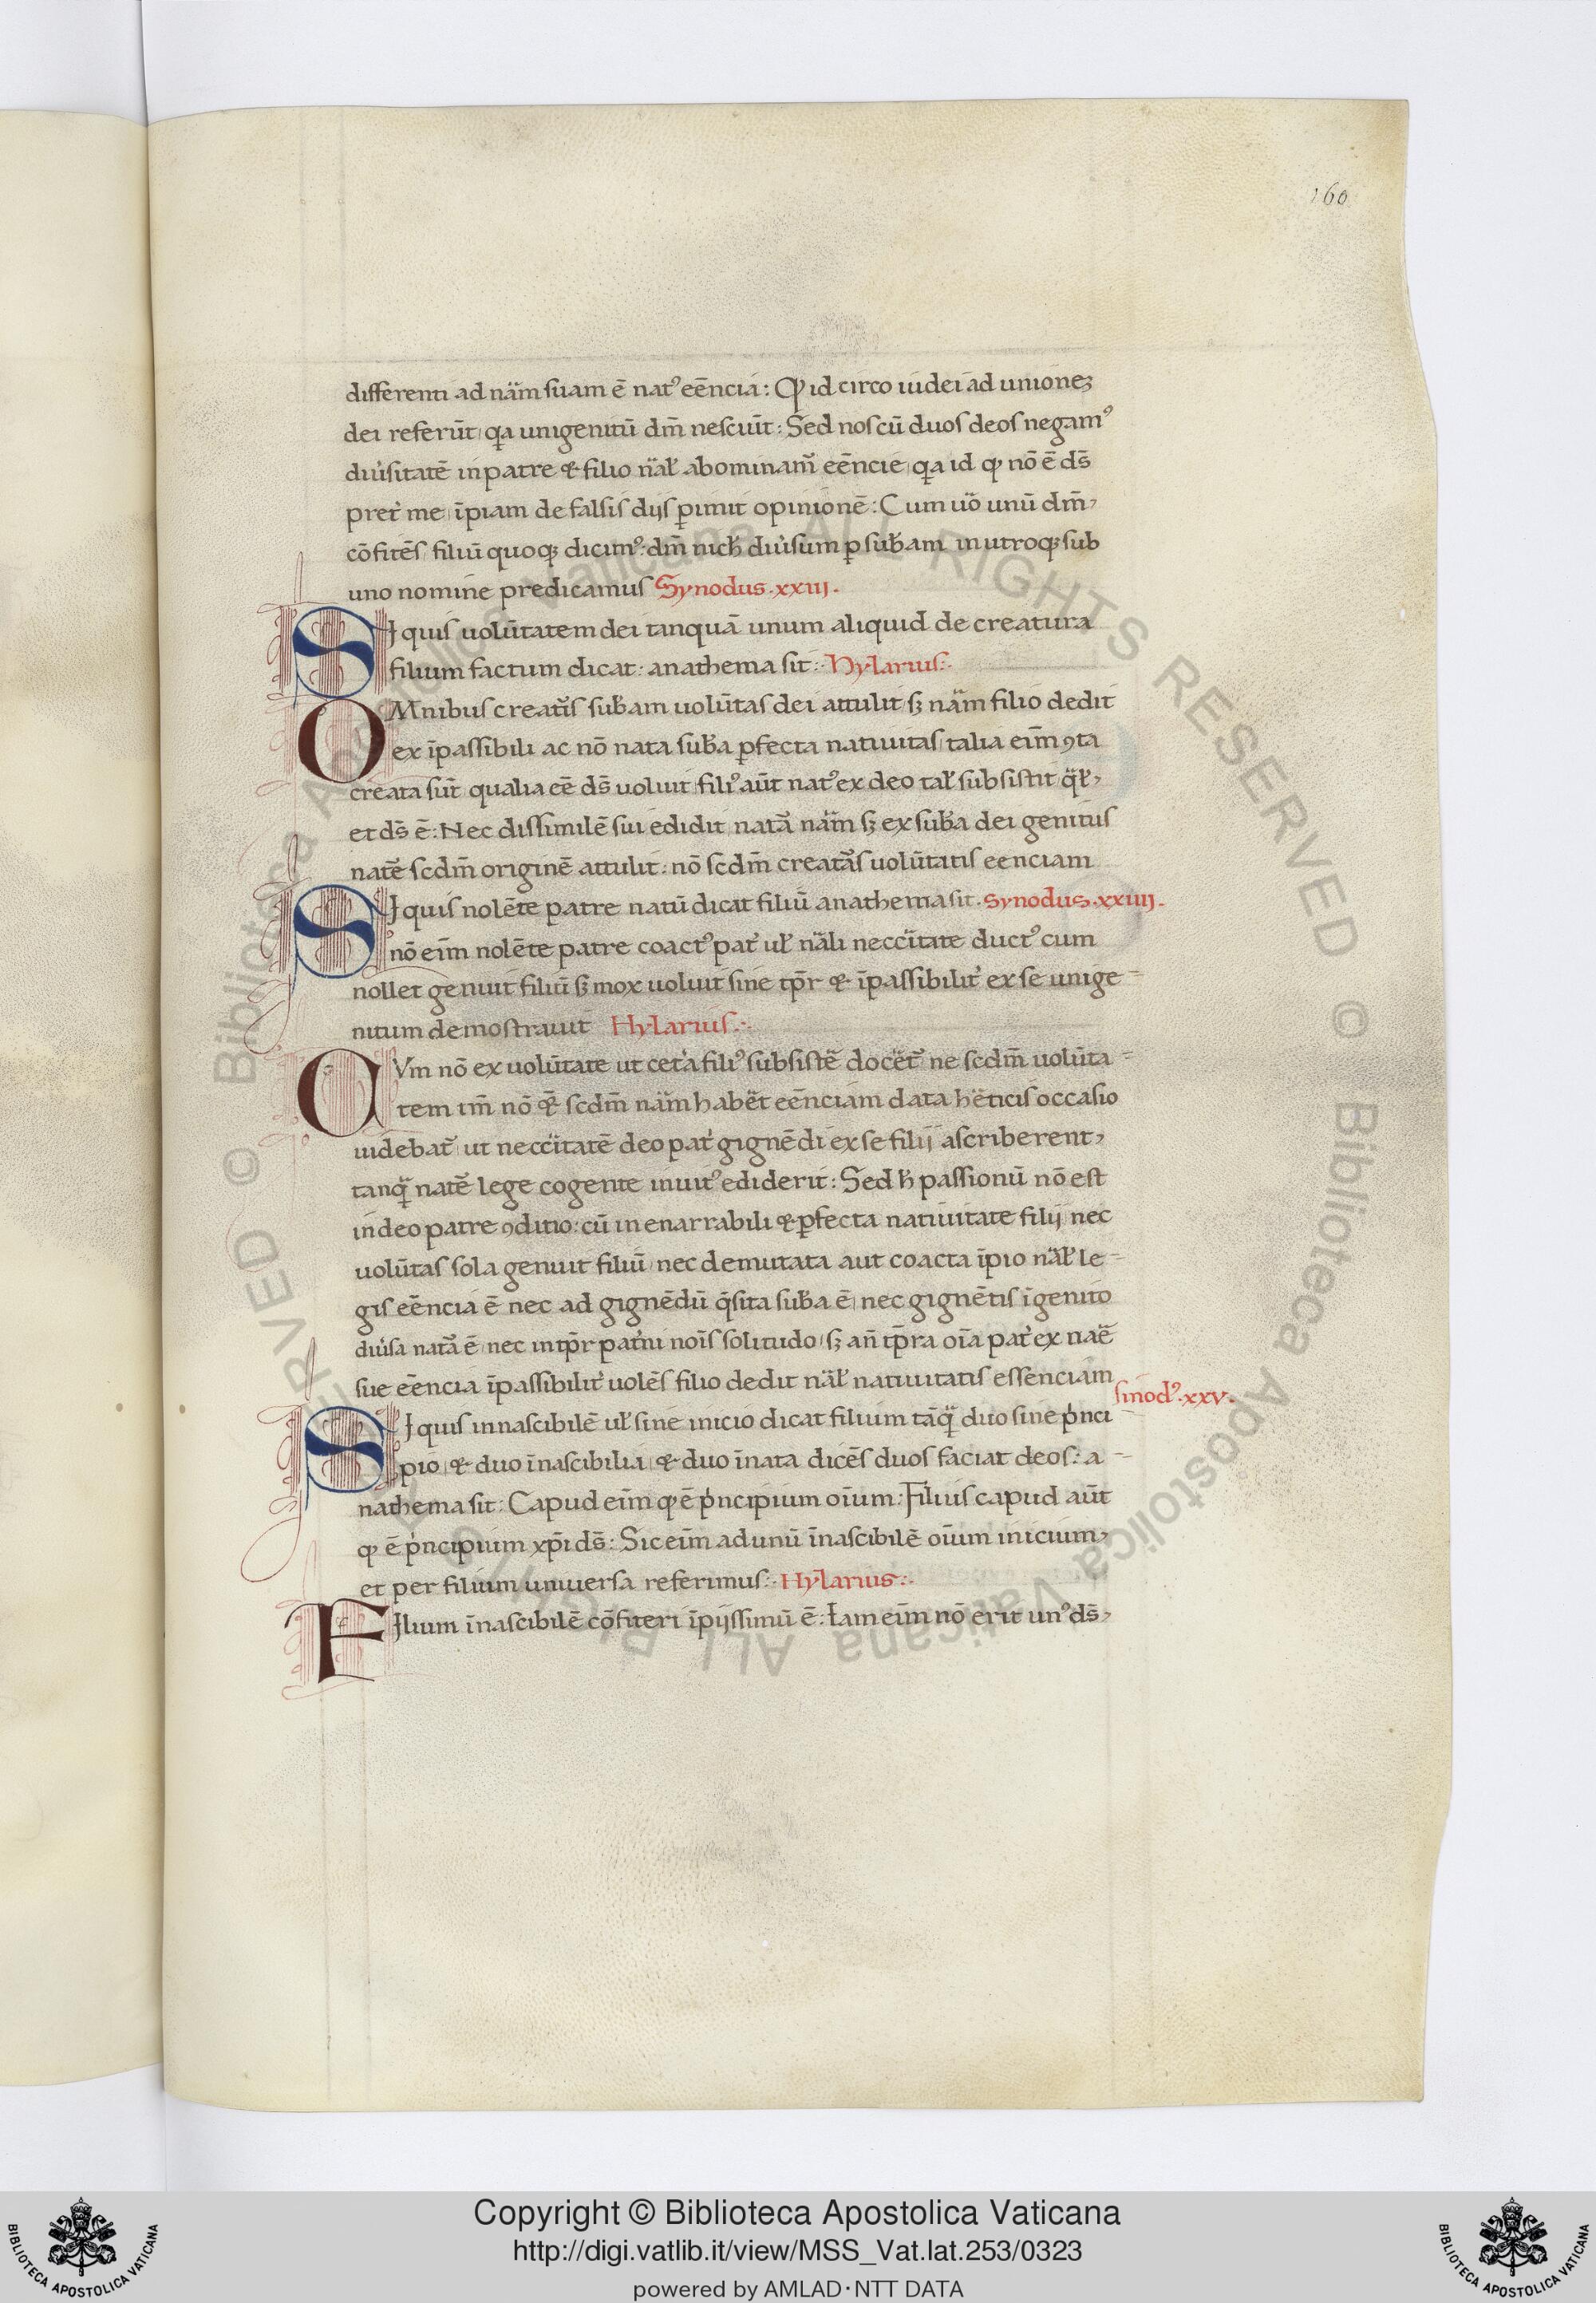 160
differenti ad nãm suam ē natꝰ eēncia: Qͥ id circo iudei ad unioneꝫ
dei referūt qͣa unigenitū dm̄ nesciūt: Sed nos cū duos deos negamꝰ
diu͛sitatē in patre & filio nãlr abominam̃ eēncie qͣa id qͥ nō ē ds̄
pret͛ me īpiam de falsis dijs ꝑimit opinionē: Cum uõ unū dm̄
cōfitēs filiū quoqꝫ dicimꝰ: dm̄ nich̄ diu͛sum ꝑ sub̄am in utroqꝫ sub
uno nomine predicamus Synodus .xxiii.
SI quis uolūtatem dei tanquā unum aliquid de creatura
filium factum dicat: anathema sit: Hylarius:
OMnibus creat̃is sub̄am uolūtas dei attulit sꝫ nãm filio dedit
ex īpassibili ac nō nata sub̄a ꝑfecta natiuitas talia eim̄ ꝯta
creata sūt qualia eē ds̄ uoluit filiꝰ aūt natꝰ ex deo talr̄ subsistit q̃lr̄
et ds̄ ē: Nec dissimilē sui edidit natã nãm sꝫ ex sub̄a dei genitus
natē scdm̄ originē attulit: nō scdm̄ creatãs uolūtatis eenciam
SI quis nolēte patre natū dicat filiū anathema sit. Synodus .xxiiij.
nō eim̄ nolēte patre coactꝰ pat͛ ul̄ nãli neccĩtate ductꝰ cum
nollet genuit filiū sꝫ mox uoluit sine tp̄r & īpassibilit͛ ex se unige
nitum demostrauit Hylarius:
CVm nō ex uolūtate ut cet͛a filiꝰ subsistē docēt̃ ne scdm̄ uolūta
tem tm̄ nō & scdm̄ nãm habēt eēnciam data hēticis occasio
uidebat̃ ut neccĩtatē deo pat͛ gignēdi ex se filij ascriberent
tanq̃ natē lege cogente inuitꝰ ediderit: Sed h̄ passionū nō est
in deo patre ꝯditio: cū in enarrabili & ꝑfecta natiuitate filij nec
uolūtas sola genuit filiū nec demutata aut coacta īpio nãlr̄ le
gis eēncia ē nec ad gignēdū q̄sita sub̄a ē nec gignētis īgenito
diu͛sa natã ē nec in tp̄r pat͛ni nōis solitudo sꝫ an̄ tp̄ra oīa pat͛ ex naē
sue eēncia īpassibilit͛ uolēs filio dedit nãlr̄ natiuitatis essenciam
sinodꝰ .xxv.
SI quis innascibilē ul̄ sine inicio dicat filium tāq̃ duo sine pͥnci
pio & duo īnascibilia & duo īnata dicēs duos faciat deos: a
nathema sit: Capud eim̄ qͥ ē pͥncipium oīum: Filius capud aūt
qͥ ē pͥncipium xp̄i ds̄: Sic eim̄ ad unū īnascibilē oīum inicium
et per filium uniuersa referimus: Hylarius:
FIlium īnascibilē cōfiteri īpijssimū ē: Iam eim̄ nō erit unꝰ ds̄
© Biblioteca Apostolica Vaticana ALL RIGHTS RESERVED © Biblioteca Apostolica Vaticana ALL RIGHTS RESERVED
Copyright © Biblioteca Apostolica Vaticana
http://digi.vatlib.it/view/MSS_Vat.lat.253/0323
powered by AMLAD·NTT DATA
BIBLIOTECA APOSTOLICA VATICANA
BIBLIOTECA APOSTOLICA VATICANA